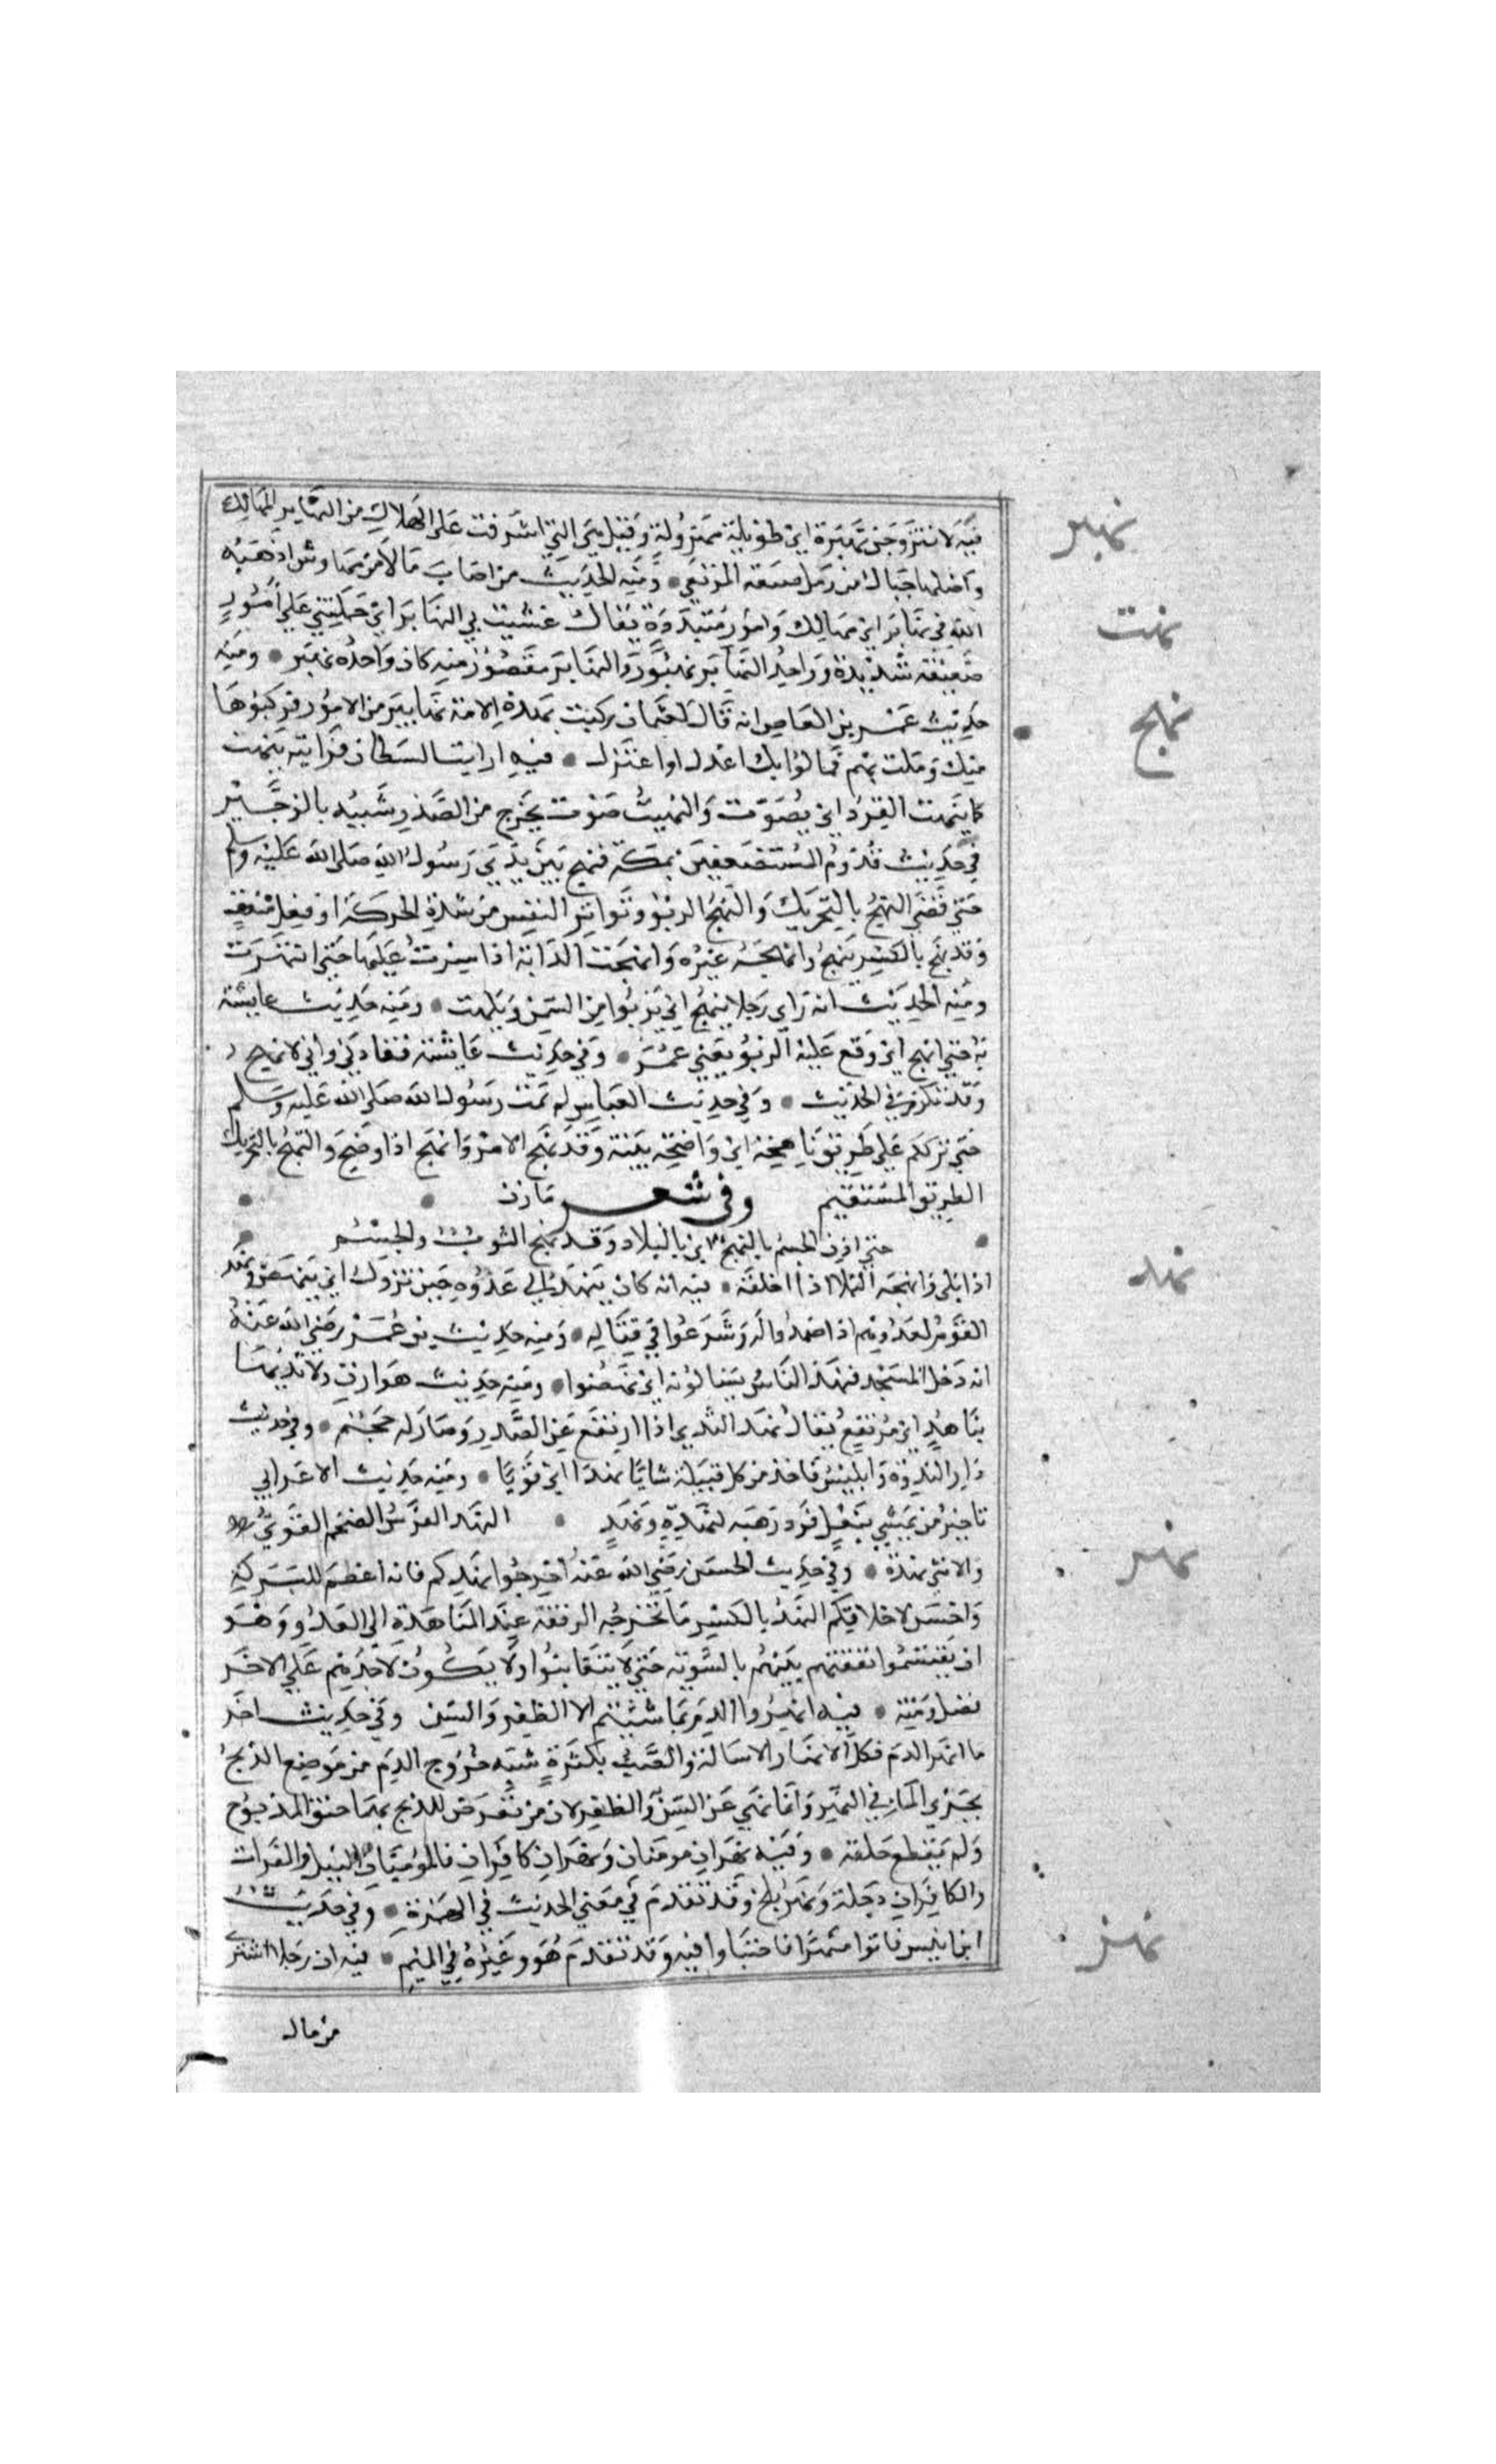 نهبر
فيه لا تتزوجن نهبرة اي طويلة مهزولة وقيل هي التي اشرفت على الهلاك من النهابر المهالك
واصلها حبال من رمل صعبة المرتقى ومنه الحديث من اصاب مالا من مهاوش اذهبه
الله في نهابر اي مهالك وامور متبددة يقال غشيت بي النهابر اي حملتني على امور
نهت
صعبة شديدة وواحد النهابر نهبور والنهابر مقصور منه كان واحده نهبر ومنه
حديث عمرو بن العاص انه قال لعثمان ركبت بهذه الامة نهابير من الامور فركبوها
نهج
منك وملت بهم فمالوا بك اعدل او اعتزل فيه اريت الشيطان فرايته ينهت
كما ينهت القرد اي يصوت والنهيت صوت يخرج من الصدر شبيه بالزحير
في حديث قدوم المستضعفين بمكة فنهج بين يدي رسول الله صلى الله عليه وسلم
حتى قضى النهج بالتحريك والنهيج الربو وتواتر النفس من شدة الحركة او فعل متعب
وقد نهج بالكسر ينهج وانهجه غيره وانهجت الدابة اذا سرت عليها حتى انبهرت
ومنه الحديث انه راى رجلا ينهج اي يربو من السمن ويلهث ومنه حديث عايشة
حتى انهج اي وقع عليه الربو يعني عمر وفي حديث عايشة فقادني واني لانهج
وقد تكرر في الحديث وفي حديث العباس لم يمت رسول الله صلى الله عليه وسلم
حتى ترككم على طريق ناهجة اي واضحة بينة وقد نهج الامر وانهج اذا وضح والنهج بالتحريك
الطريق المستقيم وفي شعر مازن
حتى اذن الجسم بالنهج اي بالبلاد وقد نهج الثوب والجسم
نهد
اذا بلي وانهجه البلا اذا اخلقه فيه انه كان ينهد الى عدوه حين تزول اي ينهض ونهد
القوم لعدوهم اذا صمدوا له وشرعوا في قتاله ومنه حديث بن عمر رضي الله عنه
انه دخل المسجد فنهد الناس يسالونه اي نهضوا ومنه حديث هوازن ولا ثديها
بناهد اي مرتفع يقال نهد الثدي اذا ارتفع عن الصدر وصار له حجم وفي حديث
دار الندوة وابليس فاخذ من كل قبيلة شابا نهدا اي قويا ومنه حديث الاعرابي
يا خير من يمشي بنعل فرد وهبه لنهدة ونهد النهد الفرس الضخم القوي
نهر
والانثى نهدة وفي حديث الحسن رضي الله عنه اخرجوا نهدكم فانه اعظم للبركة
واحسن لاخلاقكم النهد بالكسر ما تخرجه الرفقة عند المناهدة الى العدو وهو
ان يقتسموا نفقتهم بينهم بالسوية حتى لا يتغابنوا ولا يكون لاحدهم على الاخر
فضل ومنة فيه انهروا الدم بما شئتم الا الظفر والسن وفي حديث اخر
ما انهر الدم فكل الانهار الاسالة والصب بكثرة شبه خروج الدم من موضع الذبح
بجري الماء في النهر وانما نهى عن السن والظفر لان من تعرض للذبح بهما خنق المذبوح
ولم يقطع حلقه وفيه نهران مومنان ونهران كافران فالمؤمنان النيل والفرات
والكافران دجلة ونهر بلخ وقد تقدم في معنى الحديث في الهمزة وفي حديث
نهز
ابن انيس فاتوا منهرا فاختباوا فيه وقد تقدم هو وغيره في الميم فيه ان رجلا اشترى
من مال